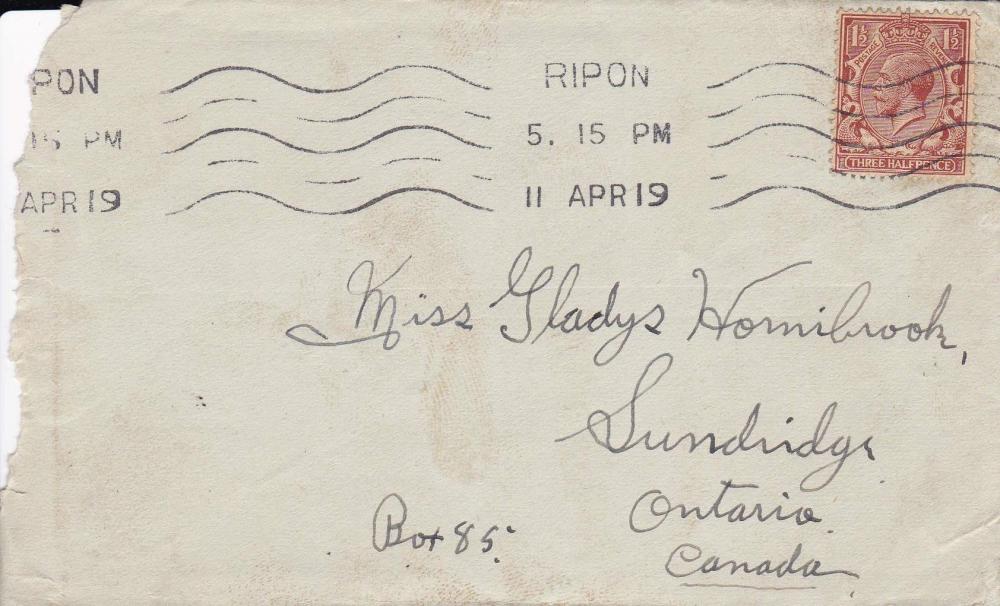 PON
15 PM
APR 19
RIPON
5. 15 PM
11 APR 19
1½ 1½
POSTAGE REVENUE
THREE HALFPENCE
Miss Gladys Hornibrook,
Sundridge
Ontario.
Canada
Box 85.